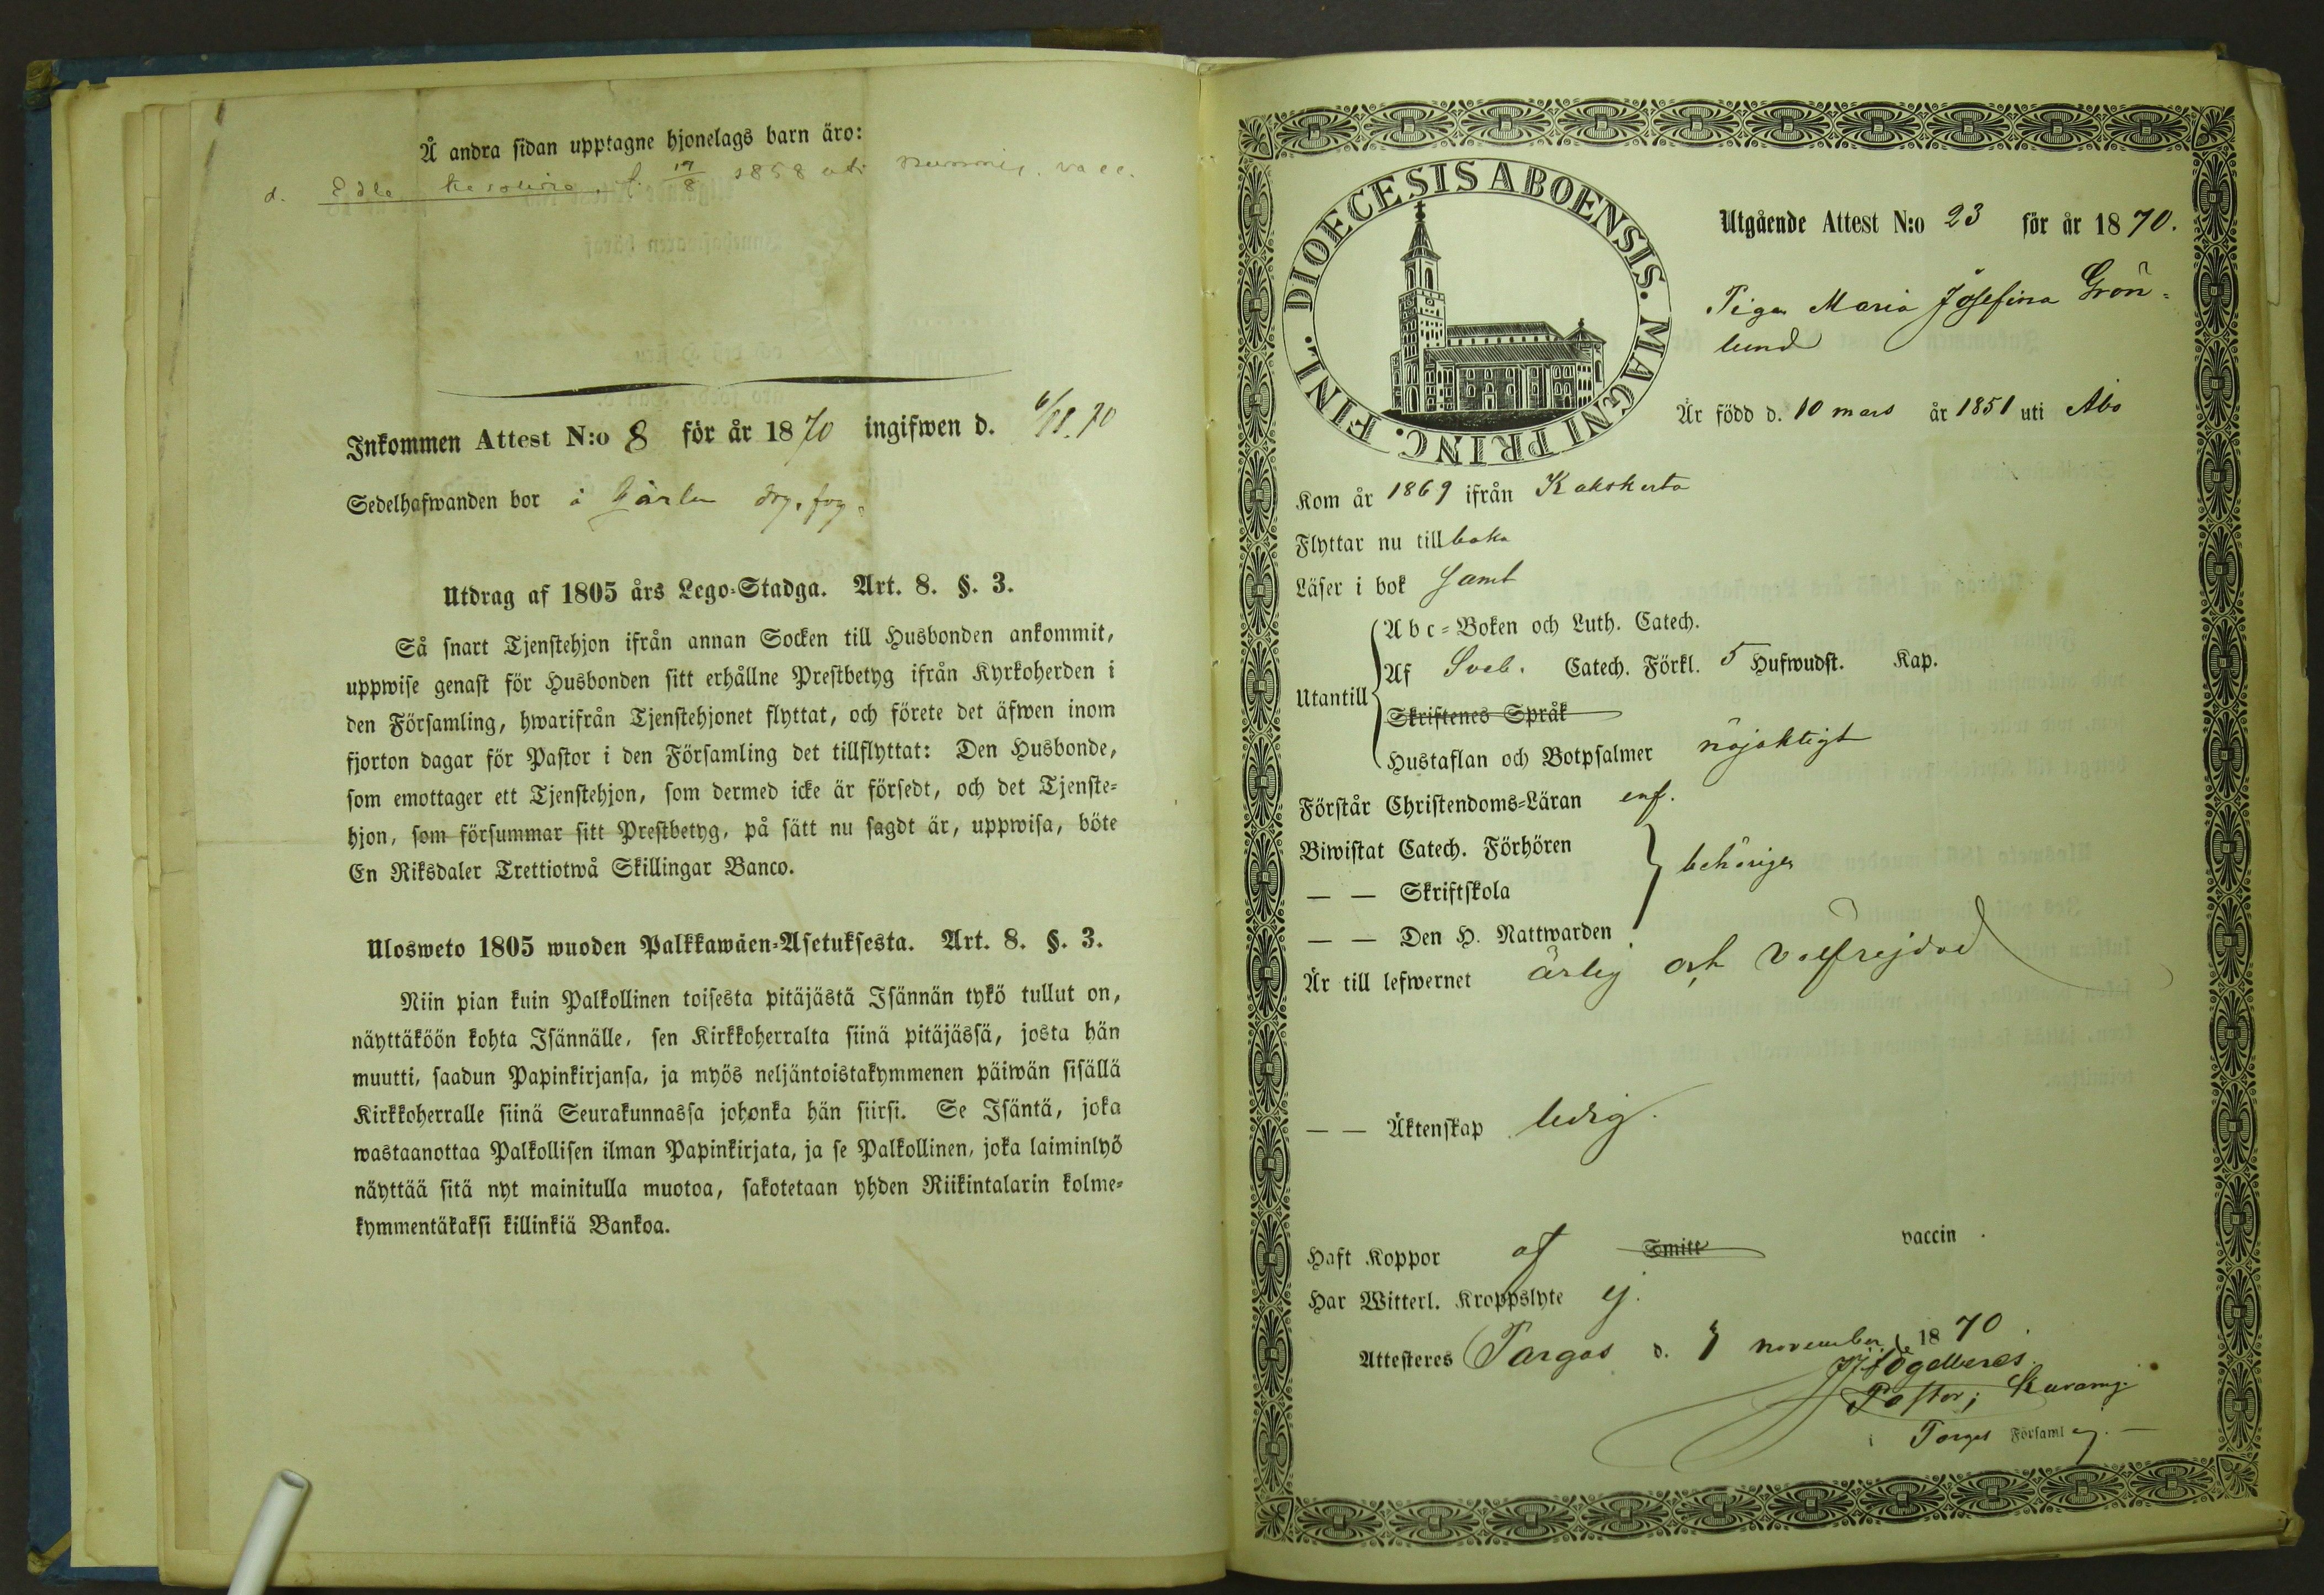 Å andra sidan upptagne hjonelags barn äro:
d. Edla Karolina f. 19/8 1858 uti Nummis. vacc.
Inkommen Attest N:o 8 för år 1870 ingifwen d. 6/11.70
Sedelhafwanden bor å
Utdrag af 1805 års Lego-Stadga. Art. 8. §. 3.
Så snart Tjenstehjon ifrån annan Socken till Husbonden ankommit,
uppwise genast för Husbonden sitt erhållne Prestbetyg ifrån Kyrkoherden i
den Församling, hwarifrån Tjenstehjonet flyttat, och förete det äfwen inom
fjorton dagar för Pastor i den Församling det tillflyttat: Den Husbonde,
som emottager ett Tjenstehjon, som dermed icke är försedt, och det Tjenste-
hjon, som försummar sitt Prestbetyg, på sätt nu sagdt är, uppwisa, böte
En Riksdaler Trettiotwå Skillingar Banco.
Ulosweto 1805 wuoden Palkkawäen-Asetuksesta. Art. 8. §. 3.
Niin pian kuin Palkollinen toisesta pitäjästä Isännän tykö tullut on,
näyttäköön kohta Isännälle, sen Kirkkoherralta siinä pitäjässä, josta hän
muutti, saadun Papinkirjansa, ja myös neljäntoistakymmenen päiwän sisällä
Kirkkoherralle siinä Seurakunnassa johonka hän siirsi. Se Isäntä, joka
wastaanottaa Palkollisen ilman Papinkirjata, ja se Palkollinen, joka laiminlyö
näyttää sitä nyt mainitulla muotoa, sakotetaan yhden Riikintalarin kolme-
kymmentäkaksi killinkiä Bankoa.
DIOECESIS ABOENSIS. MAGNI PRINC. FINL.
Utgående Attest N:o 23 för år 1870.
Pigan Maria Josefina Grön-
lund
Är född d. 10 mars år 1851 uti Åbo
Kom år 1869 ifrån Kakskerta
Flyttar nu tillbaka
Läser i bok samt
Utantill
Abc-Boken och Luth. Catech.
Af Sveb. Catech. Förkl. 5 Hufwudst. Kap.
Skriftenes Språk
Hustaflan och Botpsalmer nöjaktigt
Förstår Christendoms-Läran enf.
Biwistat Catech. Förhören
— — Skriftskola behörigen
— — Den H. Nattwarden
Är till lefwernet ärlig och välfrejdad
— — Äktenskap ledig.
Haft Koppor af Smitt vaccin.
Har Witterl. Kroppslyte ej.
Attesteras Pargas d. 5 november 1870
Pastor;
i Pargas Församling.